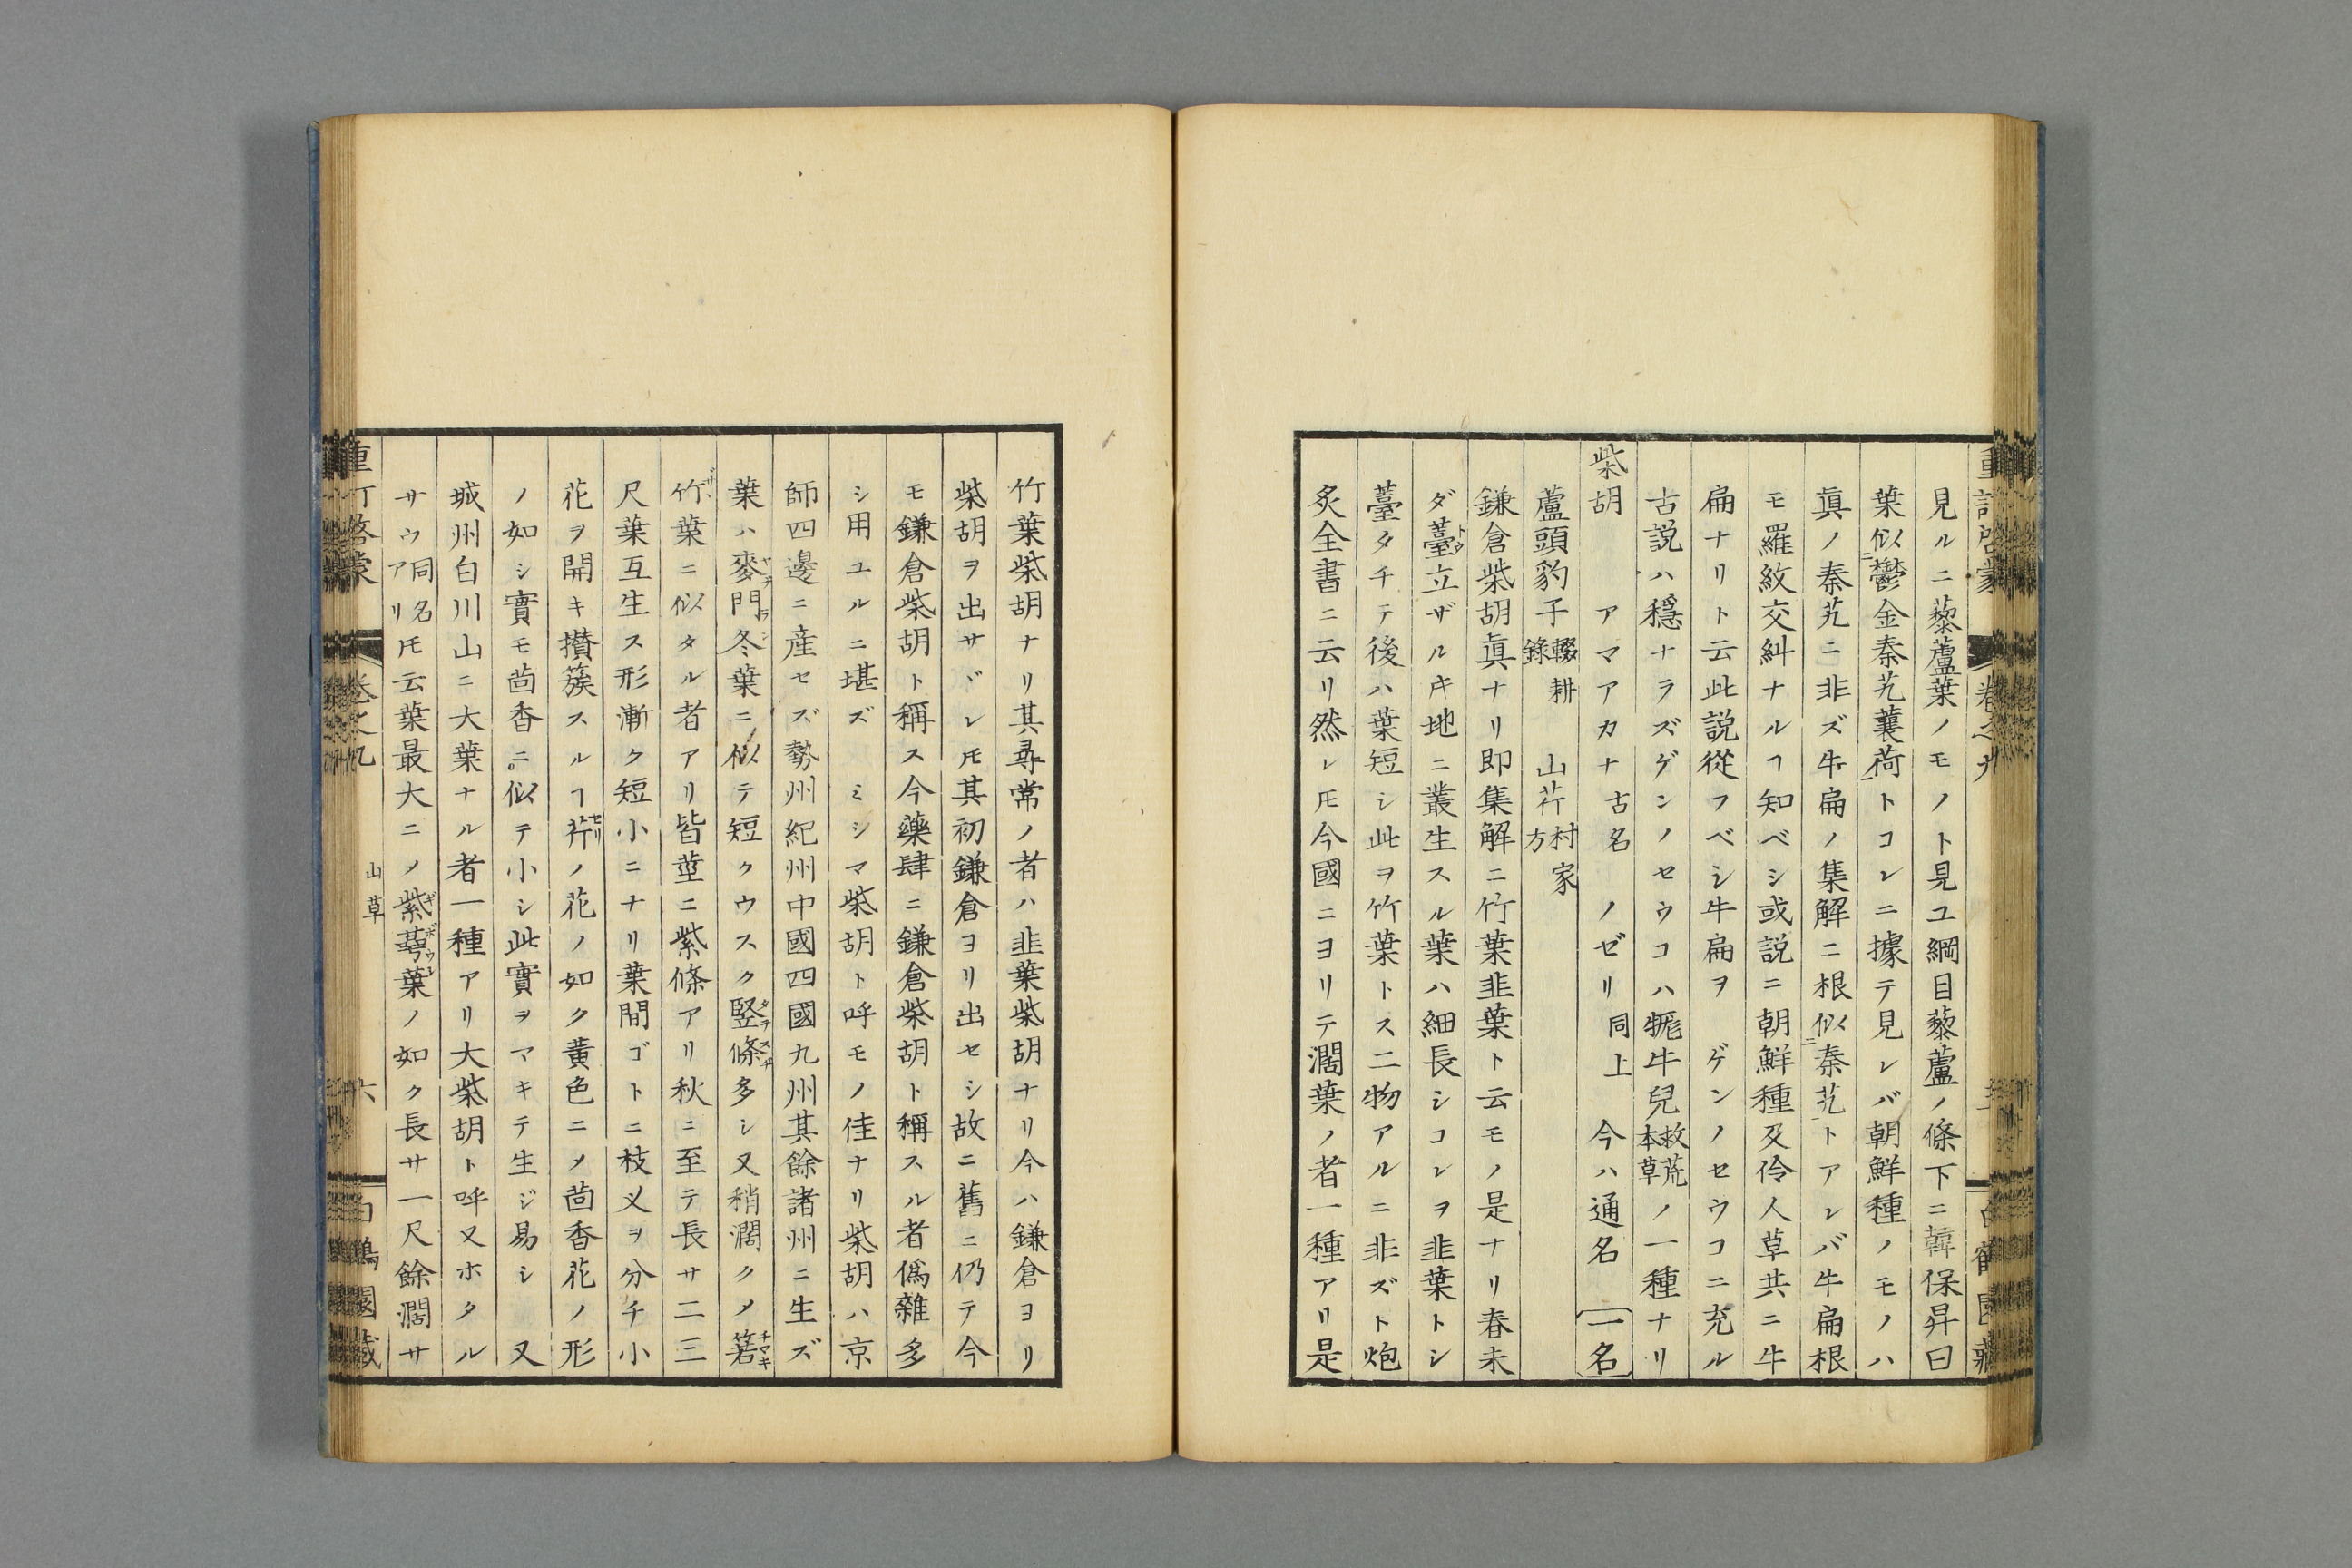 見ルニ藜蘆葉ノモノト見ユ綱目藜蘆ノ條下ニ韓保昇曰
葉似ニ鬱金秦艽蘘荷一トコレニ據テ見レバ朝鮮種ノモノハ
眞ノ秦艽ニ非ズ牛扁ノ集解ニ根似ニ秦艽一トアレバ牛扁根
モ羅紋交糾ナルヿ知ベシ或説ニ朝鮮種及伶人草共ニ牛
扁ナリト云此説從フベシ牛扁ヲ ゲンノセウコニ充ル
古説ハ穩ナラズゲンノセウコハ牻牛兒救荒本草ノ一種ナリ
柴胡 アマアカナ古名 ノゼリ同上 今ハ通名 一名
蘆頭豹子輟耕錄 山荇村家方
鎌倉柴胡眞ナリ即集解ニ竹葉韭葉ト云モノ是ナリ春未
ダ薹トウ立ザルキ地ニ叢生スル葉ハ細長シコレヲ韭葉トシ
薹タチテ後ハ葉短シ此ヲ竹葉トス二物アルニ非ズト炮
炙全書ニ云リ然レ𪜈今國ニヨリテ濶葉ノ者一種アリ是
竹葉柴胡ナリ其尋常ノ者ハ韭葉柴胡ナリ今ハ鎌倉ヨリ
柴胡ヲ出サヾレ𪜈其初鎌倉ヨリ出セシ故ニ舊ニ仍テ今
モ鎌倉柴胡ト稱ス今藥肆ニ鎌倉柴胡ト稱スル者僞雜多
シ用ユルニ堪ズ ミシマ柴胡ト呼モノ佳ナリ柴胡ハ京
師四邊ニ産セズ勢州紀州中國四國九州其餘諸州ニ生ズ
葉ハ麥門冬葉ニ似テ短クウスク竪條タテスヂ多シ又稍濶クメ箬チマキ
ザヽ竹葉ニ似タル者アリ皆莖ニ紫條アリ秋ニ至テ長サ二三
尺葉互生ス形漸ク短小ニナリ葉間ゴトニ枝乂ヲ分チ小
花ヲ開キ攅簇スルヿ芹セリノ花ノ如ク黄色ニメ茴香花ノ形
ノ如シ實モ茴香ニ似テ小シ此實ヲマキテ生ジ易シ 又
城州白川山ニ大葉ナル者一種アリ大柴胡ト呼又ホタル
サウ同名アリ𪜈云葉最大ニメ紫蕚ギボウシ葉ノ如ク長サ一尺餘濶サ
山草
六